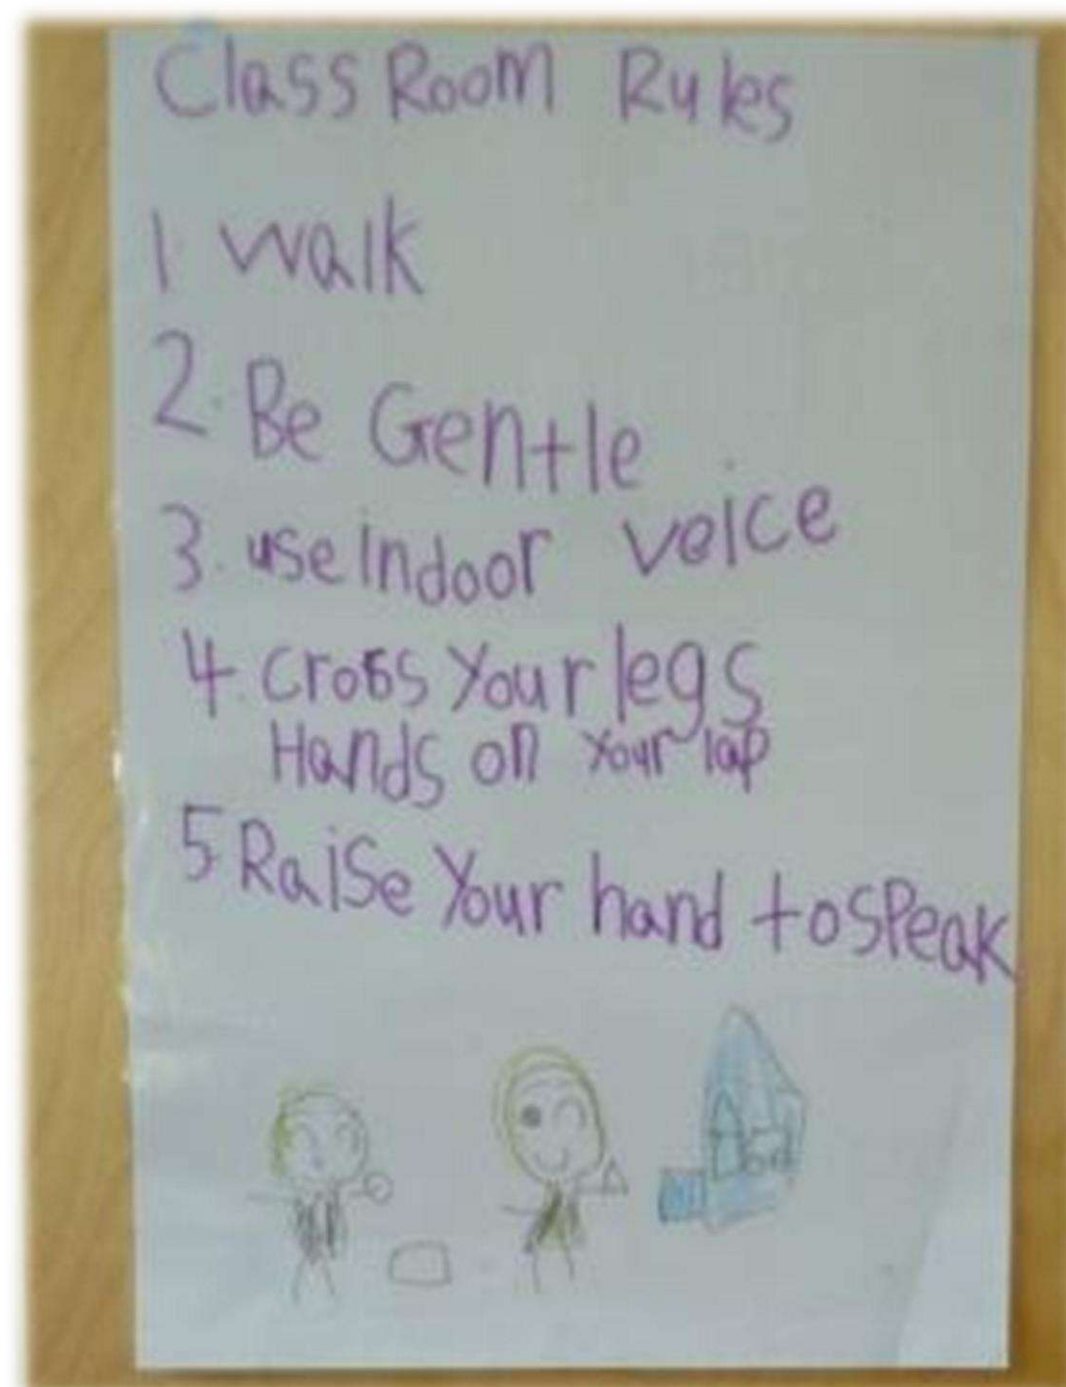 Class Room Rules
1. walk
2. Be Gentle
3. use indoor veice
4. cross your legs
Hands on your lap
5 Raise Your hand to speak